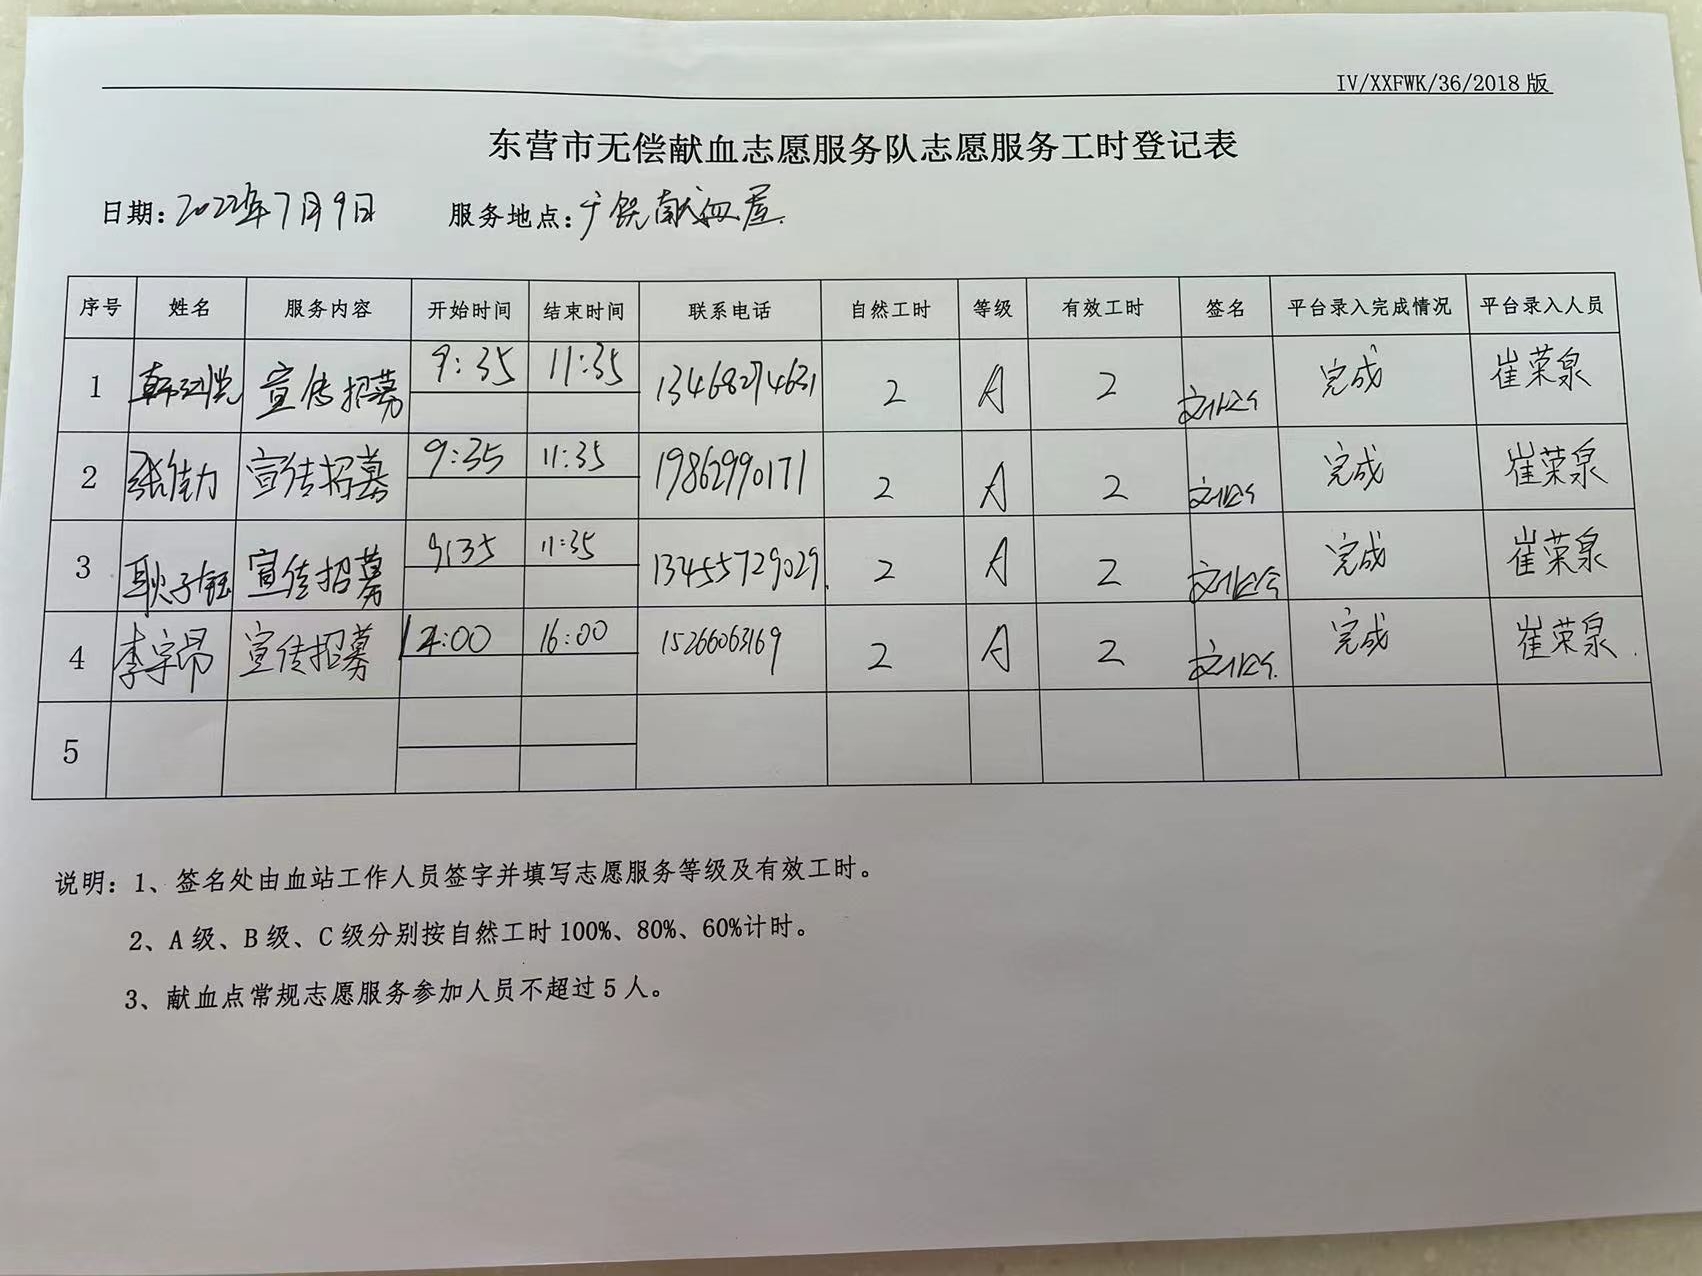 IV/XXFWK/36/2018 版
东营市无偿献血志愿服务队志愿服务工时登记表
日期: 2022年7月9日 服务地点: 广饶献血屋.
序号 姓名 服务内容 开始时间 结束时间 联系电话 自然工时 等级 有效工时 签名 平台录入完成情况 平台录入人员
1 宣传招募 9:35 11:35 13468274631 2 A 2 完成 崔荣泉
2 张佳力 宣传招募 9:35 11:35 19862990171 2 A 2 完成 崔荣泉
3 耿子钰 宣传招募 9:35 11:35 13455729029 2 A 2 完成 崔荣泉
4 李宇昂 宣传招募 14:00 16:00 15266063169 2 A 2 完成 崔荣泉
5
说明: 1、签名处由血站工作人员签字并填写志愿服务等级及有效工时。
2、A 级、B 级、C 级分别按自然工时 100%、80%、60%计时。
3、献血点常规志愿服务参加人员不超过 5 人。